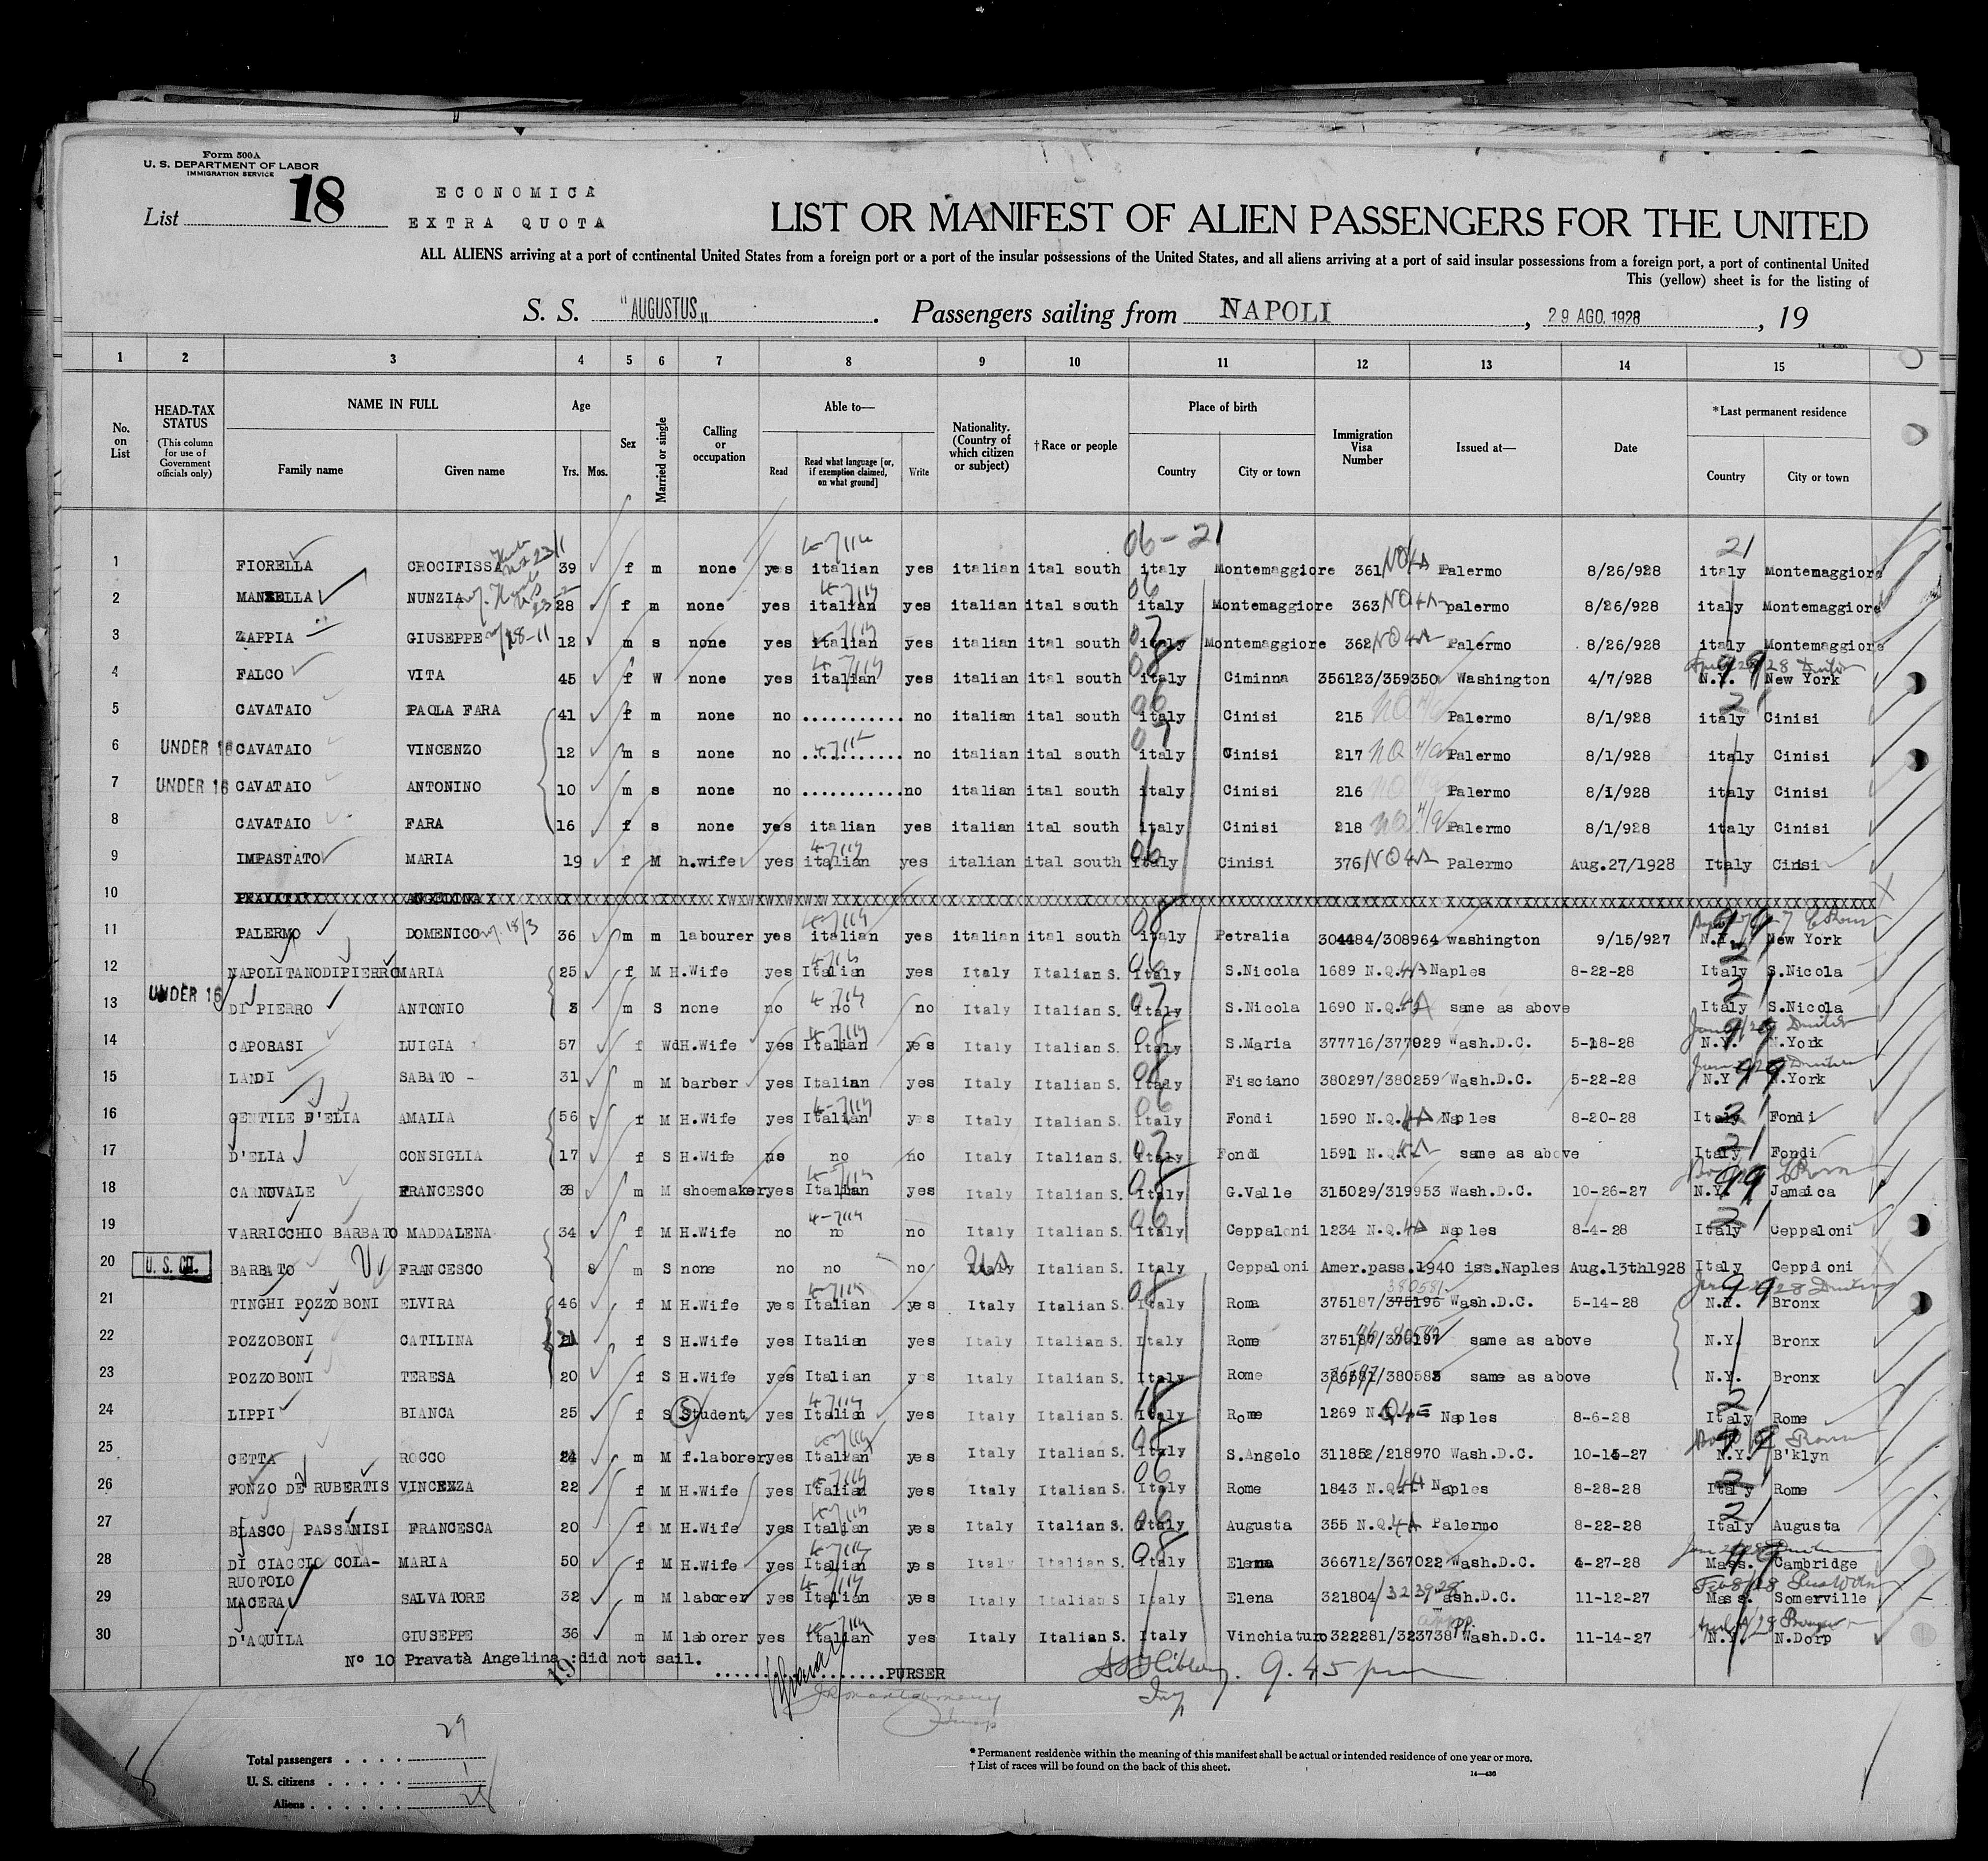 Form 500A
U. S. DEPARTMENT OF LABOR
IMMIGRATION SERVICE
List 18
ECONOMICA
EXTRA QUOTA
LIST OR MANIFEST OF ALIEN PASSENGERS FOR THE UNITED
ALL ALIENS arriving at a port of continental United States from a foreign port or a port of the insular possessions of the United States, and all aliens arriving at a port of said insular possessions from a foreign port, a port of continental United
This (yellow) sheet is for the listing of
S. S. "AUGUSTUS„ . Passengers sailing from NAPOLI , 29 AGO. 1928 , 19
1 2 3 4 5 6 7 8 9 10 11 12 13 14 15
No. on List
HEAD-TAX STATUS (This column for use of Government officials only)
NAME IN FULL
Family name Given name
Age
Yrs. Mos.
Sex
Married or single
Calling or occupation
Able to—
Read Read what language [or, if exemption claimed, on what ground] Write
Nationality. (Country of which citizen or subject)
†Race or people
Place of birth
Country City or town
Immigration Visa Number
Issued at—
Date
*Last permanent residence
Country City or town
06-21 21
1 FIORELLA CROCIFISSA 39 f m none yes italian yes italian ital south italy Montemaggiore 361 NQ4A Palermo 8/26/928 italy Montemaggiore
2 MANZELLA NUNZIA 28 f m none yes italian yes italian ital south italy Montemaggiore 363 NQ4A palermo 8/26/928 italy Montemaggiore
3 ZAPPIA GIUSEPPE 12 m s none yes italian yes italian ital south italy Montemaggiore 362 NQ4A Palermo 8/26/928 italy Montemaggiore
4 FALCO VITA 45 f W none yes italian yes italian ital south italy Ciminna 356123/359350 Washington 4/7/928 N.Y. New York
5 CAVATAIO PAOLA FARA 41 f m none no ............ no italian ital south italy Cinisi 215 NQ 4/a Palermo 8/1/928 italy Cinisi
6 UNDER 16 CAVATAIO VINCENZO 12 m s none no ............ no italian ital south italy Cinisi 217 NQ 4/a Palermo 8/1/928 italy Cinisi
7 UNDER 16 CAVATAIO ANTONINO 10 m s none no ............ no italian ital south italy Cinisi 216 NQ 4/a Palermo 8/1/928 italy Cinisi
8 CAVATAIO FARA 16 f s none yes italian yes italian ital south italy Cinisi 218 NQ 4/a Palermo 8/1/928 italy Cinisi
9 IMPASTATO MARIA 19 f M h.wife yes italian yes italian ital south Italy Cinisi 376 NQ4A Palermo Aug.27/1928 Italy Cinisi
10
11 PALERMO DOMENICO 36 m m labourer yes italian yes italian ital south italy Petralia 304484/308964 washington 9/15/927 N.Y. New York
12 NAPOLITANODIPIERRO MARIA 25 f M H.Wife yes Italian yes Italy Italian S. Italy S.Nicola 1689 N.Q.4A Naples 8-22-28 Italy S.Nicola
13 UNDER 16 DI PIERRO ANTONIO m S none no no no Italy Italian S. Italy S.Nicola 1690 N.Q.4A same as above Italy S.Nicola
14 CAPORASI LUIGIA 57 f Wd H.Wife yes Italian yes Italy Italian S. Italy S.Maria 377716/377929 Wash.D.C. 5-18-28 N.Y. N.York
15 LANDI SABATO - 31 m M barber yes Italian yes Italy Italian S. Italy Fisciano 380297/380259 Wash.D.C. 5-22-28 N.Y N.York
16 GENTILE D'ELIA AMALIA 56 f M H.Wife yes Italian yes Italy Italian S. Italy Fondi 1590 N.Q.4A Naples 8-20-28 Italy Fondi
17 D'ELIA CONSIGLIA 17 f S H.Wife no no no Italy Italian S. Italy Fondi 1591 N.Q.4A same as above Italy Fondi
18 CARNOVALE FRANCESCO 38 m M shoemaker yes Italian yes Italy Italian S. Italy G.Valle 315029/319953 Wash.D.C. 10-26-27 N.Y. Jamaica
19 VARRICCHIO BARBATO MADDALENA 34 f M H.Wife no no no Italy Italian S. Italy Ceppaloni 1234 N.Q.4A Naples 8-4-28 Italy Ceppaloni
20 U. S. CIT. BARBATO FRANCESCO m S none no no no Italy Italian S. Italy Ceppaloni Amer.pass.1940 iss.Naples Aug.13th1928 Italy Ceppaloni
380581
21 TINGHI POZZOBONI ELVIRA 46 f M H.Wife yes Italian yes Italy Italian S. Italy Roma 375187/375196 Wash.D.C. 5-14-28 N.Y. Bronx
22 POZZOBONI CATILINA 21 f S H.Wife yes Italian yes Italy Italian S. Italy Rome same as above N.Y. Bronx
23 POZZOBONI TERESA 20 f S H.Wife yes Italian yes Italy Italian S. Italy Rome same as above N.Y. Bronx
24 LIPPI BIANCA 25 f S Student yes Italian yes Italy Italian S. Italy Rome 1269 N.Q.4E Naples 8-6-28 Italy Rome
25 CETTA ROCCO 24 m M f.laborer yes Italian yes Italy Italian S. Italy S.Angelo 311852/218970 Wash.D.C. 10-15-27 N.Y. B'klyn
26 FONZO DE RUBERTIS VINCENZA 22 f M H.Wife yes Italian yes Italy Italian S. Italy Rome 1843 N.Q.4A Naples 8-28-28 Italy Rome
27 BLASCO PASSANISI FRANCESCA 20 f M H.Wife yes Italian yes Italy Italian S. Italy Augusta 355 N.Q.4A Palermo 8-22-28 Italy Augusta
28 DI CIACCIO COLA- MARIA 50 f M H.Wife yes Italian yes Italy Italian S. Italy Elena 366712/367022 Wash.D.C. 4-27-28 Mass. Cambridge
RUOTOLO
29 MACERA SALVATORE 32 m M laborer yes Italian yes Italy Italian S Italy Elena 321804/323928 Wash.D.C. 11-12-27 Mass. Somerville
30 D'AQUILA GIUSEPPE 36 m M laborer yes Italian yes Italy Italian S. Italy Vinchiaturo 322281/323738 Wash.D.C. 11-14-27 N.Y. N.Dorp
N° 10 Pravatà Angelina :did not sail. ..................PURSER 9.45 pm
19
Total passengers . . . . 29
U. S. citizens . . . . . 1
Aliens . . . . . . 28
* Permanent residence within the meaning of this manifest shall be actual or intended residence of one year or more.
† List of races will be found on the back of this sheet.
14—430